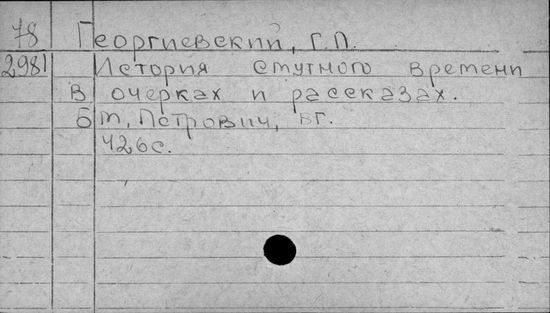 78 Георгиевский, Г.П.
2981 История смутного времени
в очерках и рассказах.
Б м, Петрович, вг.
426с.